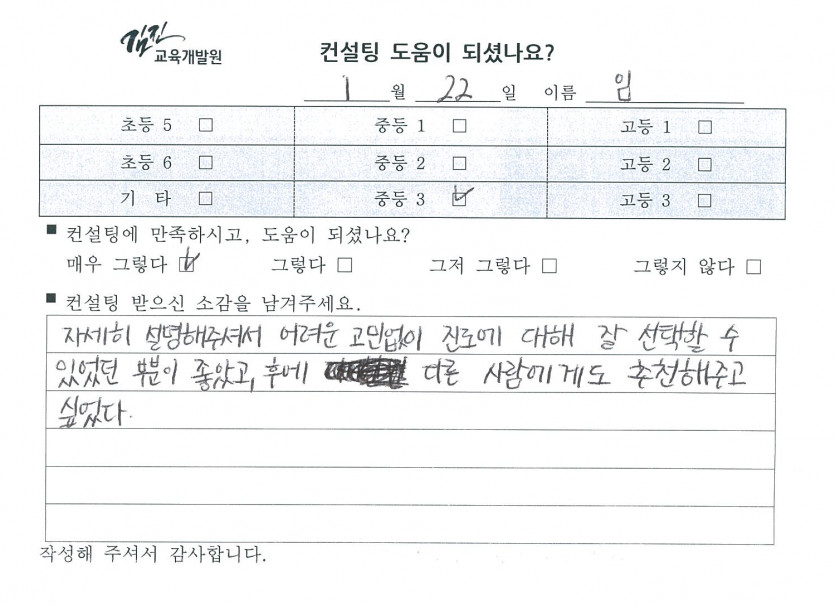 김진
교육개발원
컨설팅 도움이 되셨나요?
1 월 22 일 이름 임
초등 5 □ 중등 1 □ 고등 1 □
초등 6 □ 중등 2 □ 고등 2 □
기 타 □ 중등 3 ☑ 고등 3 □
■ 컨설팅에 만족하시고, 도움이 되셨나요?
매우 그렇다 ☑ 그렇다 □ 그저 그렇다 □ 그렇지 않다 □
■ 컨설팅 받으신 소감을 남겨주세요.
자세히 설명해주셔서 어려운 고민없이 진로에 대해 잘 선택할 수
있었던 부분이 좋았고, 후에 다른 사람에게도 추천해주고
싶었다.
작성해 주셔서 감사합니다.